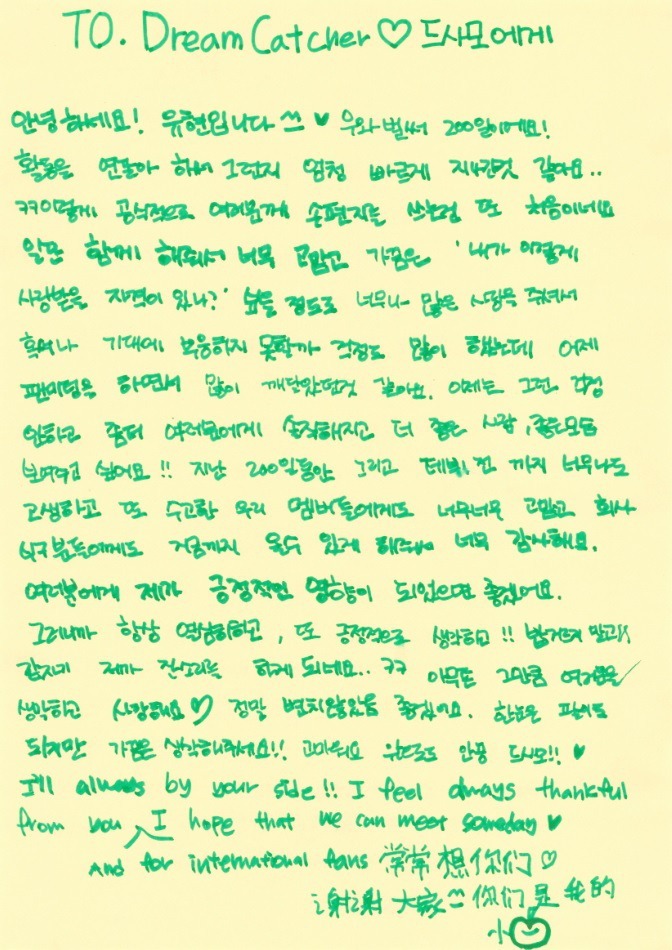 TO. DreamCatcher ♡ 드사모에게
안녕하세요! 유현입니다 ^^ ♥ 우와 벌써 200일이에요!
활동을 연달아 하서 그런지 엄청 빠르게 지나간것 같아요..
ㅋㅋ이렇게 공식적으로 여러분께 손편지를 쓰는건 또 처음이네요
일단 함께 해줘서 너무 고맙고 가끔은 '내가 이렇게
사랑받을 자격이 있나?' 싶을 정도로 너무나 많은 사랑을 주셔서
혹여나 기대에 부응하지 못할까 걱정도 많이 했는데 어제
팬미팅을 하면서 많이 깨달았던것 같아요. 이제는 그런 걱정
안하고 좀더 여러분에게 솔직해지고 더 좋은 사람, 좋은모습
보여주고 싶어요!! 지난 200일동안 그리고 데뷔 전 까지 너무나도
고생하고 또 수고한 우리 멤버들에게도 너무너무 고맙고 회사
식구분들에게도 지금까지 올수 있게 해줘서 너무 감사해요.
여러분에게 제가 긍정적인 영향이 되었으면 좋겠어요.
그러니까 항상 열심히하고, 또 긍정적으로 생각하고!! 밥거르지 말고
갑자기 제가 잔소리를 하게 되네요.. ㅋㅋ 아무튼 그만큼 여러분을
생각하고 사랑해요♡ 정말 변치않았음 좋겠어요. 한분은
되지만 가끔은 생각해주세요!! 고마워요 앞으로도 안뇽 드사모!! ♥
I'll always by your side!! I feel always thankful
from you I hope that we can meet someday ♥
and for international fans 常常想你们♡
谢谢大家 ^^ 你们是我的
小